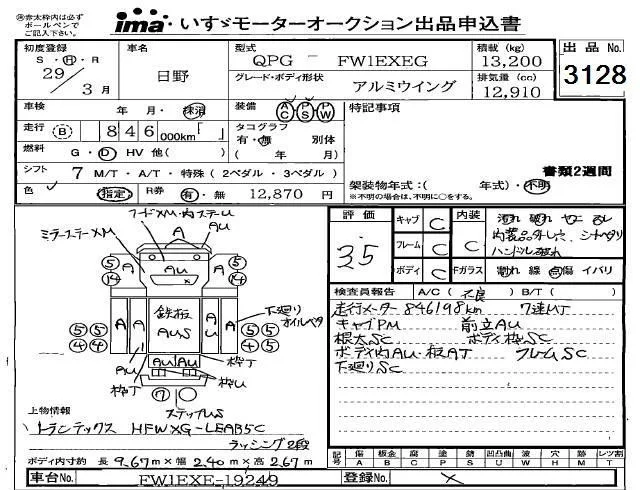 ㊟赤太枠内は必ず
ボールペンで
ご記入下さい。
ima いすゞモーターオークション出品申込書
初度登録 車名 型式 積載 (kg) 出品 No.
S・H・R 日野 QPG - FW1EXEG 13,200 3128
29 / 3月 グレード・ボディ形状 アルミウイング 排気量 (cc) 12,910
車検 年・月・抹消 装備 AC PS PW 特記事項
走行 (B) 846,000km「 」 タコグラフ 有・無 別体
燃料 G・D・HV 他( ) ( 年 月)
書類2週間
シフト 7 M/T・A/T・特殊 (2ペダル・3ペダル) 架装物年式:( 年式)・不明
※不明の場合は、不明に○をする。
色 指定 R券 有・無 12,870 円
評価 3.5
キャブ C 内装 C
フレーム C
ボディ C Fガラス 割れ 線 点傷 イバリ
ハンドル破れ
フードXM・内ステーU
ミラーステーXM
A AU
AU
鉄板
AUS
下廻り
オイルベタ
枠T 枠U
ステップUS
検査員報告 A/C( 不良 ) B/T( )
走行メーター 846198km 7速MT
キャブPM 前立AU
根太SC ボディ枠SC
ボディ内AU・板AT フレームSC
下廻りSC
上物情報
トランテックス HFWXG-LEAB5C
ラッシング2段
ボディ内寸約 長 9.67m×幅 2.40m×高 2.67m
記号 傷 A 板金 B 腐 C 塗 P 錆 S 凹凸曲 U 波 W 穴 H 跡 M レツ割 T
車台No. FW1EXE-19249 登録No. ×